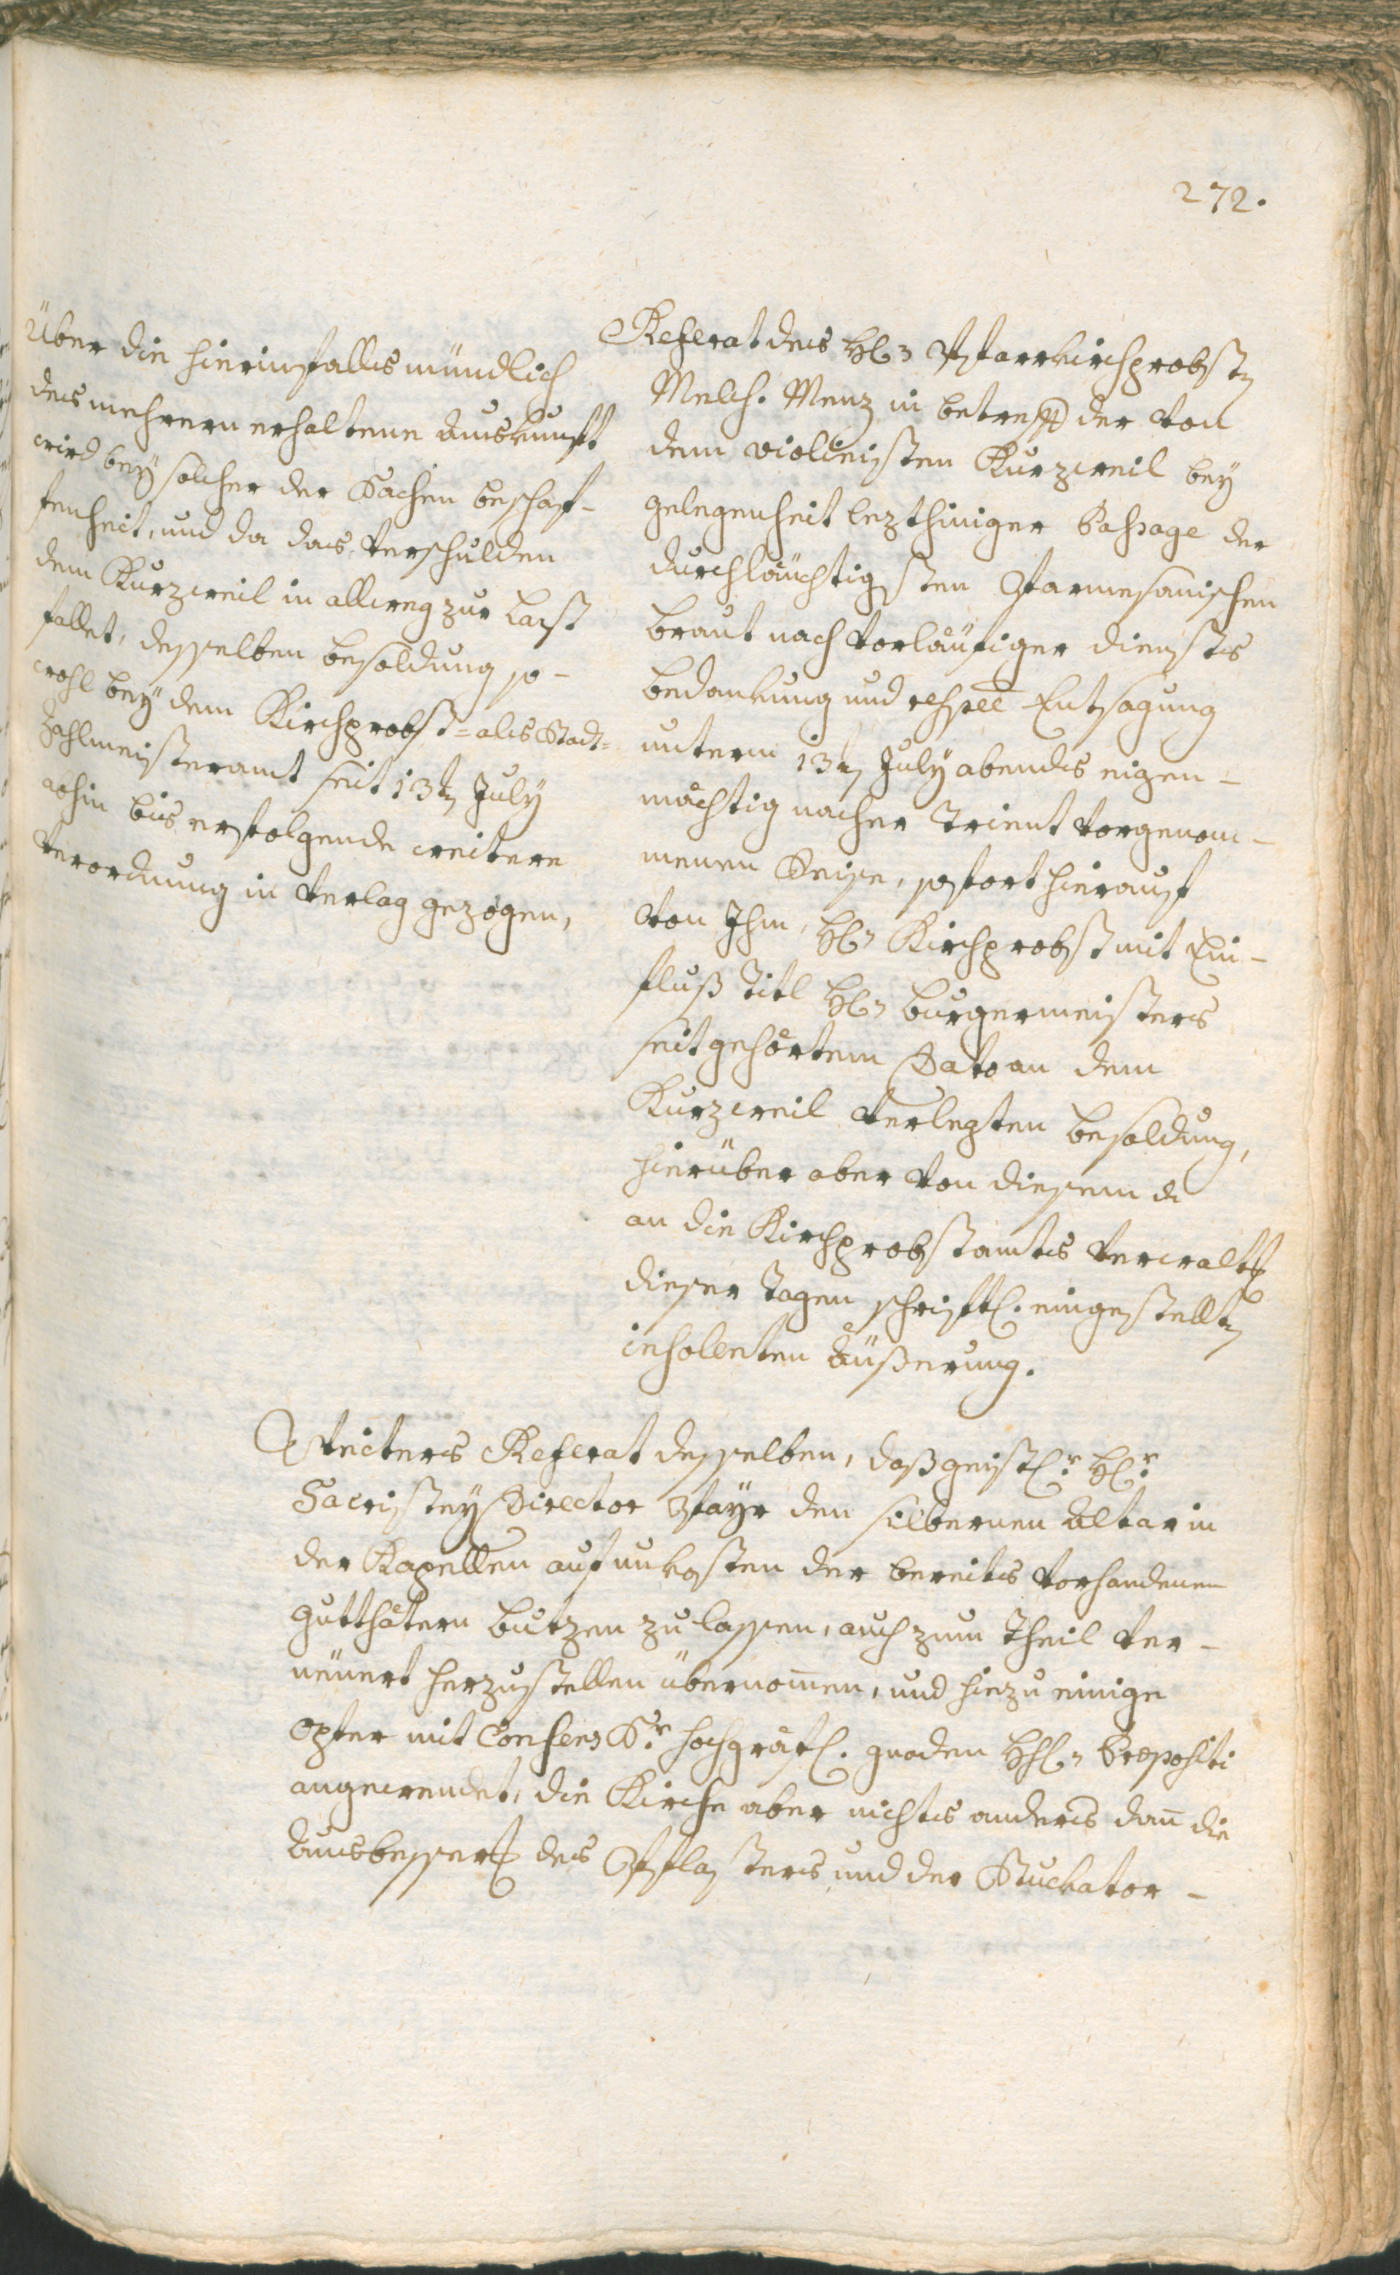 272.
Über die hierinfalls mündlich
des mehrern erhaltene Auskunft
wird bey solcher der Sachen beschaf-
fenheit, und da das Verschulden
dem Kurzweil in allweg zur Last
fallet, desselben besoldung so-
wohl bey dem Kirchprobst- als Stadt-
Zahlmeisteramt seit 13tn July
abhin bis erfolgende weitere
Verordnung in Verlag gezogen,
Referat des Hln Pfarrkirchprobstn
Melch. Menz in betreff der von
dem Violinisten Kurzweil bey
gelegenheit lezthiniger Passage der
durchläuchtigsten Parmesanischen
braut nach vorläufiger dienstes
bedankung und respee Entsagung
unterm 13tn July abends eigen-
mächtig nacher Trient vorgenom-
menen Reise, sofort hierauf
von Ihm, Hln Kirchprobst mit Ein-
fluß Titl Hln burgermeisters
seit gehörtem Dato an dem
Kurzweil verlegten besoldung,
hierüber aber von diesem di
an die Kirchprobstamts verwaltg
dieser Tagen schriftl. eingestelltn
insolenten Äußerung.
Weiters Referat desselben, daß geistlr. Hlr.
Sacristeydirector Mayr den silbernen Altar in
der Kapellen auf unkosten der bereits vorhandenen
gutthätern butzen zu lassen, auch zum Theil ver-
neuert herzustellen übernom̄en, und hiezu einige
Opfer mit Consens Sr. hochgräfl. gnaden HHln Præpositi
angewendet, die Kirche aber nichts anders dan̄ die
Ausbesserg des Pflasters und der Stuckator-